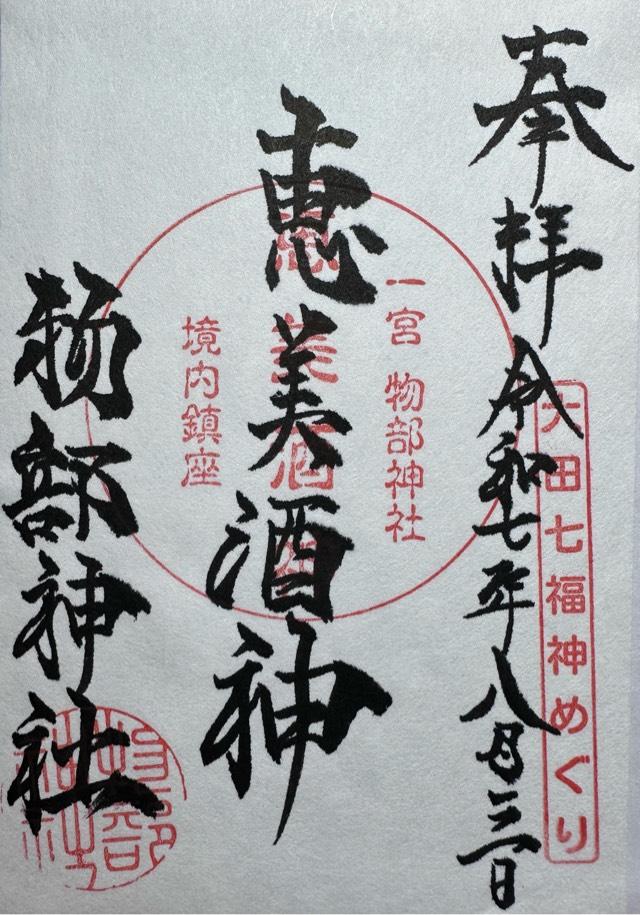 奉拝
令和七年八月三日
大田七福神めぐり
一宮 物部神社
恵美酒神
境内鎮座
物部神社
物部神社